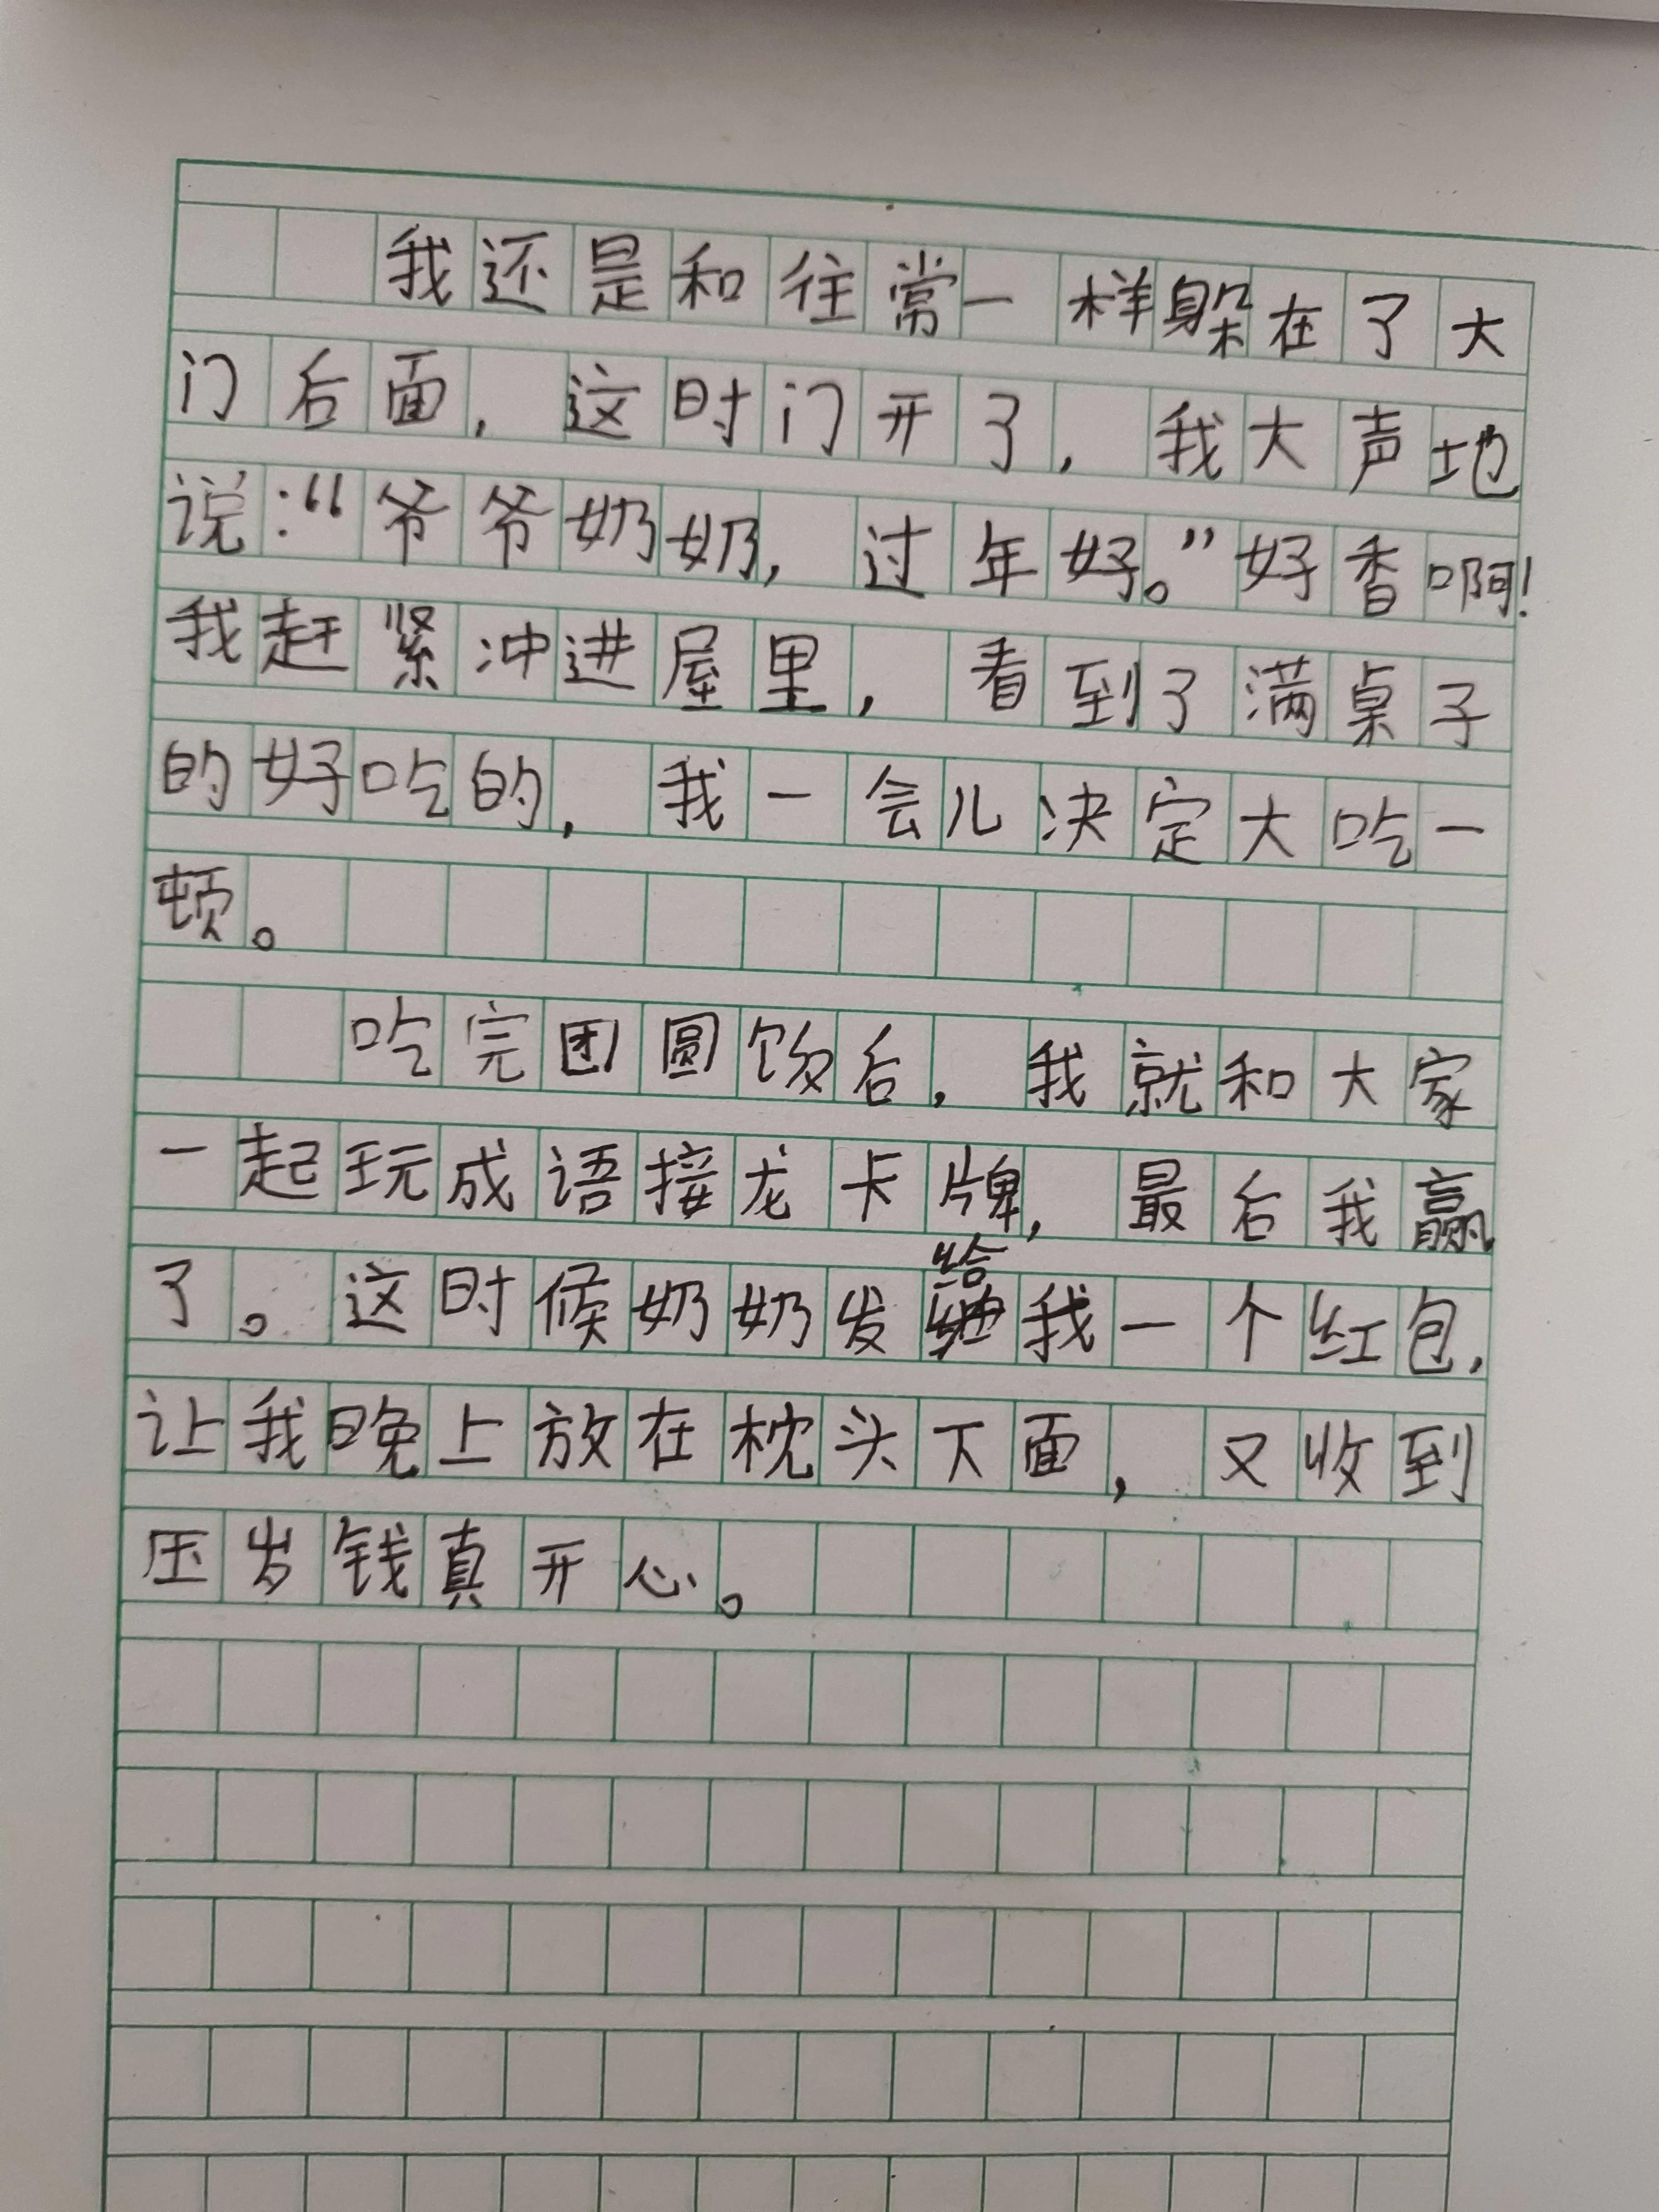 我还是和往常一样躲在了大
门后面，这时门开了，我大声地
说：“爷爷奶奶，过年好。”好香啊！
我赶紧冲进屋里，看到了满桌子
的好吃的，我一会儿决定大吃一
顿。
吃完团圆饭后，我就和大家
一起玩成语接龙卡牌，最后我赢
了。这时候奶奶发给我一个红包，
让我晚上放在枕头下面，又收到
压岁钱真开心。